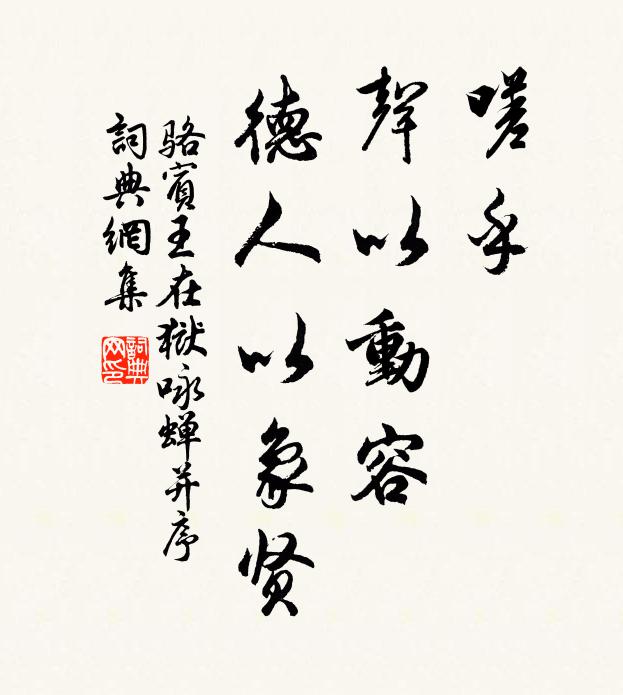 嗟乎
聲以動容
德人以象贤
骆賓王在獄咏蝉并序
詞典網集
詞典网印